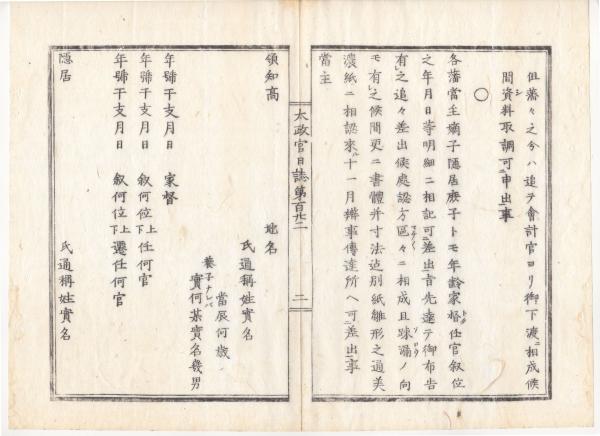 但藩々之分ハ追テ會計官ヨリ御下渡ニ相成候
間資料取調可ニ申出ー事
○
各藩當主嫡子隱居庶子トモ年齡家督任官叙位
之年月日等明細ニ相記可ニ差出ー旨先達テ御布告
有レ之追々差出候處認方區々ニ相成且踈漏ノ向
モ有レ之候間更ニ書體并寸法迠別紙雛形之通美
濃紙ニ相認來ル十一月辨事傳達所ヘ可ニ差出ー事
當主
太政官日誌第百廿二
二
領知高 地名
氏通稱姓實名
當辰何歲
養子ナレバ
實何某實名幾男
年號干支月日 家督
年號干支月日 叙何位上下任何官
年號干支月日 叙何位上下遷任何官
隱居 氏通稱姓實名